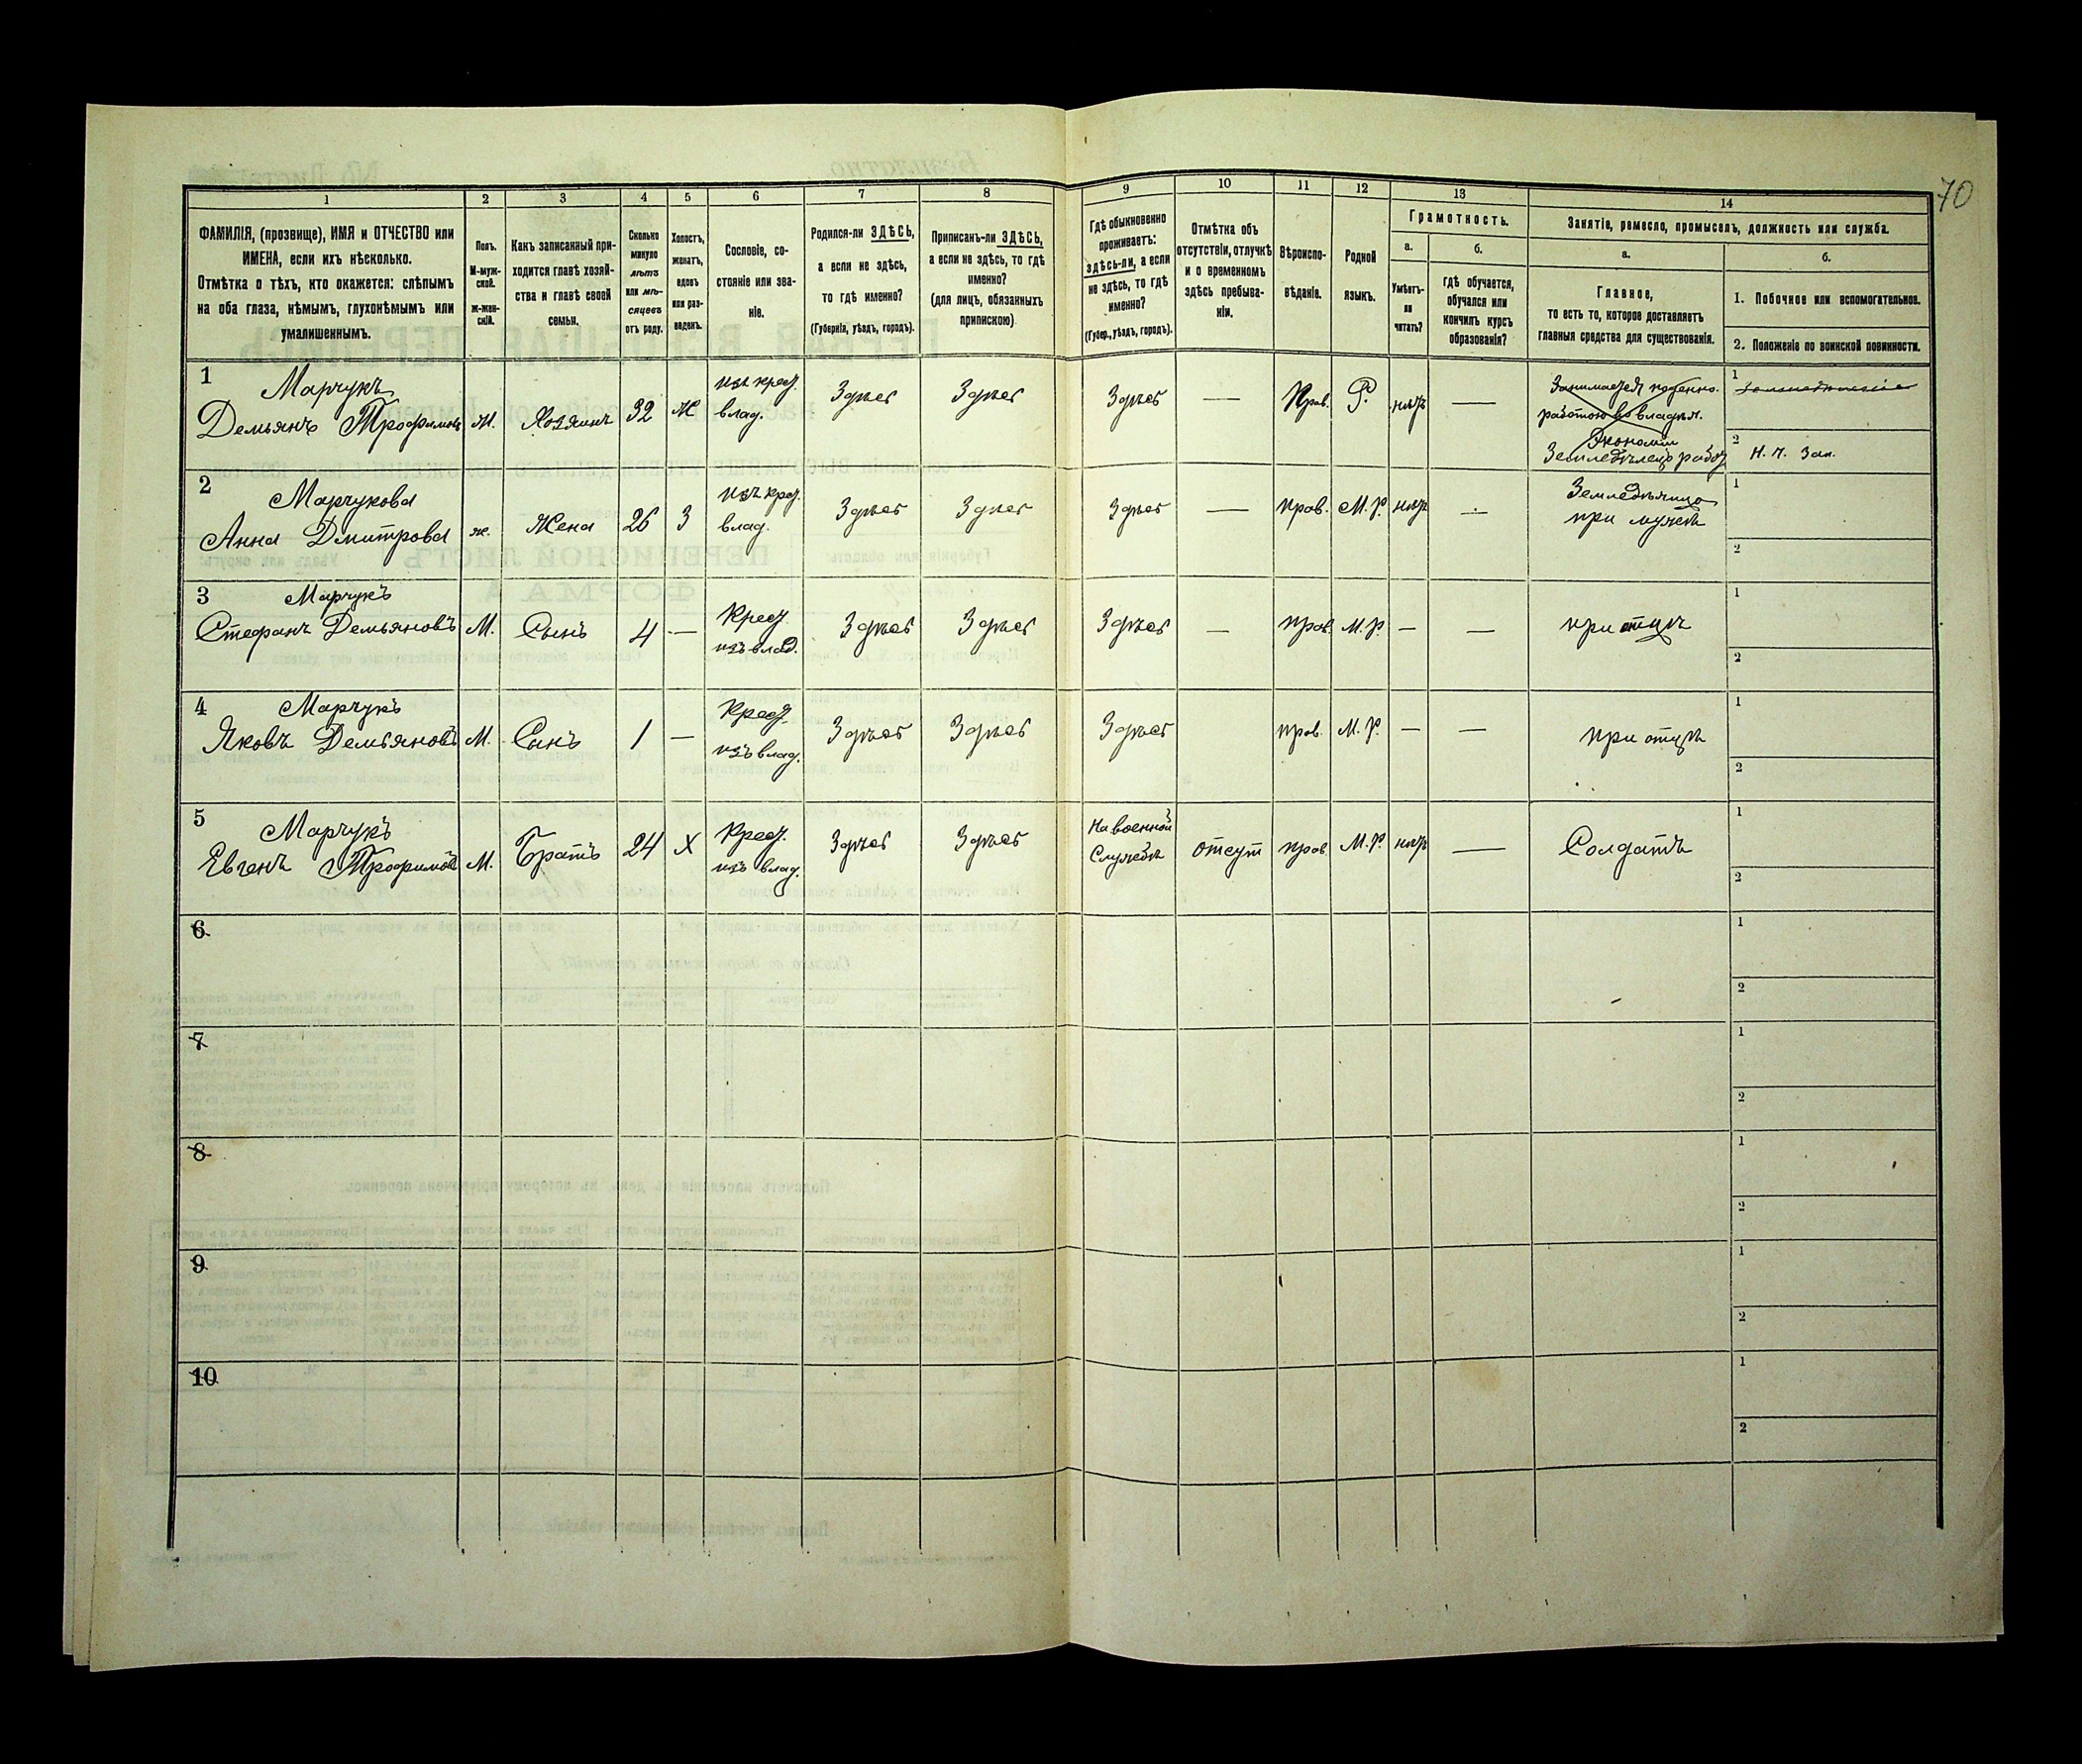 70
1 2 3 4 5 6 7 8 9 10 11 12 13 14
ФАМИЛІЯ, (прозвище), ИМЯ и ОТЧЕСТВО или
ИМЕНА, если ихъ нѣсколько.
Отмѣтка о тѣхъ, кто окажется: слѣпымъ
на оба глаза, нѣмымъ, глухонѣмымъ или
умалишеннымъ.
Полъ.
М-муж-
ской.
Ж-жен-
скій.
Какъ записанный при-
ходится главѣ хозяй-
ства и главѣ своей
семьи.
Сколько
минуло
лѣтъ
или мѣ-
сяцевъ
отъ роду.
Холостъ,
женатъ,
вдовъ
или раз-
веденъ.
Сословіе, со-
стояніе или зва-
ніе.
Родился-ли ЗДѢСЬ,
а если не здѣсь,
то гдѣ именно?
(Губернія, уѣздъ, городъ).
Приписанъ-ли ЗДѢСЬ,
а если не здѣсь, то гдѣ
именно?
(для лицъ, обязанныхъ
припискою)
Гдѣ обыкновенно
проживаетъ:
здѣсь-ли, а если
не здѣсь, то гдѣ
именно?
(Губер., уѣздъ, городъ).
Отмѣтка объ
отсутствіи, отлучкѣ
и о временномъ
здѣсь пребыва-
ніи.
Вѣроиспо-
вѣданіе.
Родной
языкъ.
Грамотность.
а.
Умѣетъ-
ли
читать?
б.
гдѣ обучается,
обучался или
кончилъ курсъ
образованія?
Занятіе, ремесло, промыселъ, должность или служба.
а.
Главное,
то есть то, которое доставляетъ
главныя средства для существованія.
б.
1. Побочное или вспомогательное.
2. Положеніе по воинской повинности.
1 Марчукъ
Демьянъ Трофимовъ М. Хозяинъ 32 Ж
изъ крест.
влад.
Здѣсь Здѣсь Здѣсь — Прав. Р. нѣтъ —
Занимается поденно.
работою во владѣл.
Экономіи
1
2 Н. Ч. Зап.
2 Марчукова
Анна Дмитрова ж. Жена 26 З
изъ крест.
влад.
Здѣсь Здѣсь Здѣсь — прав. М.Р. нѣтъ —
при мужѣ
1
2
3 Марчукъ
Стефанъ Демьяновъ М. Сынъ 4 —
Крест.
изъ влад.
Здѣсь Здѣсь Здѣсь — прав. М.Р. — — при отцѣ
1
2
4 Марчукъ
Яковъ Демьяновъ М. Сынъ 1 —
Крест.
изъ влад.
Здѣсь Здѣсь Здѣсь прав. М.Р. — — при отцѣ
1
2
5 Марчукъ
Евгенъ Трофимовъ М. Братъ 24 Х
Крест.
изъ влад.
Здѣсь Здѣсь
На военной
Службѣ
отсут прав М.Р. нѣтъ — Солдатъ
1
2
6
1
2
7
1
2
8
1
2
9
1
2
10
1
2